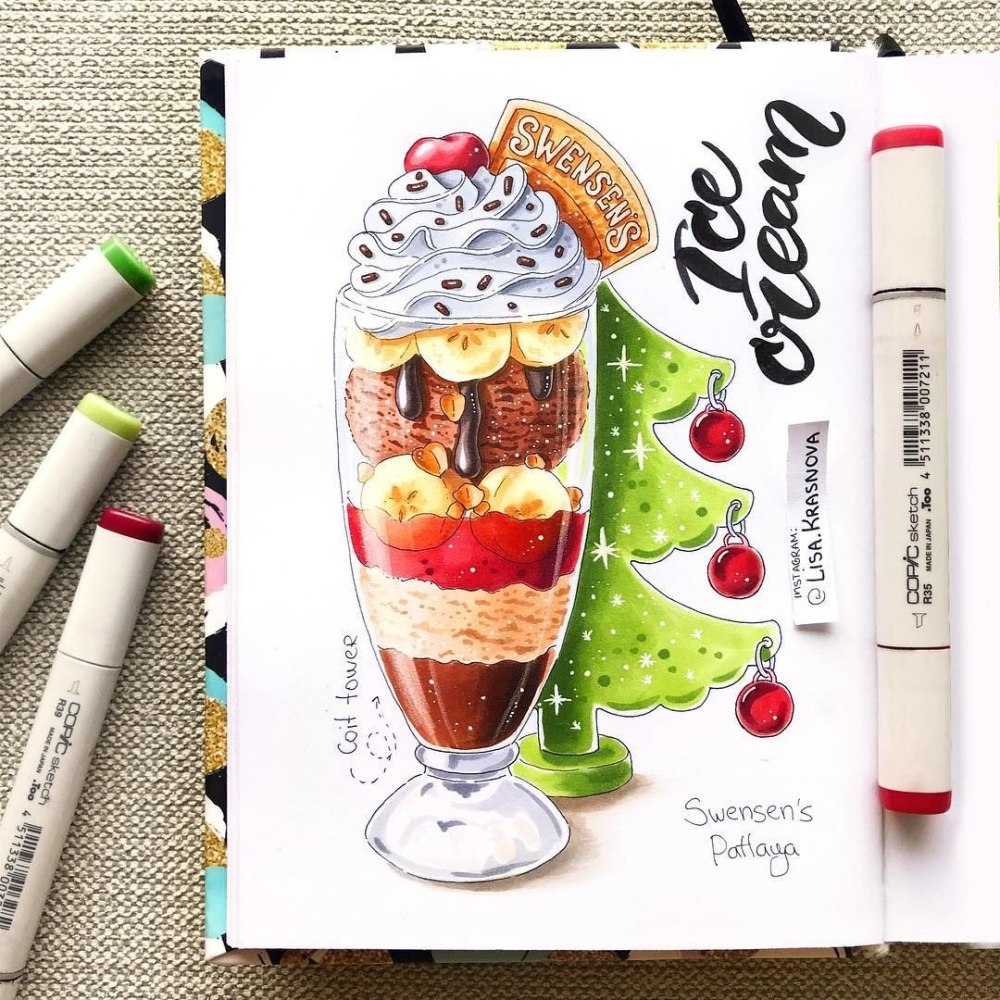 SWENSEN'S
Ice
cream
INSTAGRAM:
@LISA.KRASNOVA
Coit tower
Swensen's
Pattaya
COPIC sketch
R35 MADE IN JAPAN .Too
4 511338 007211
COPIC sketch
R39 MADE IN JAPAN .Too